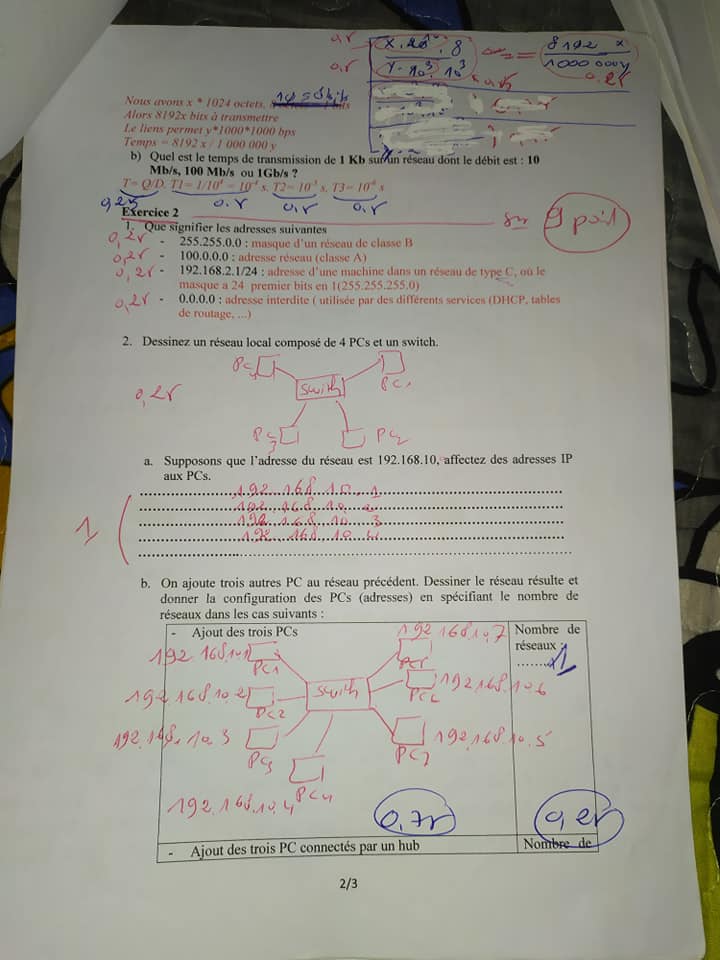 0,25
X. 2^10. 8
Y. 10^3. 10^3
0,25
8192 x
1000 000 y
0.25
Nous avons x * 1024 octets,
Alors 8192x bits à transmettre
Le liens permet y*1000*1000 bps
Temps = 8192 x / 1 000 000 y
b) Quel est le temps de transmission de 1 Kb sur un réseau dont le débit est : 10
Mb/s, 100 Mb/s ou 1Gb/s ?
T= Q/D. T1= 1/10⁴ = 10⁻⁴ s, T2= 10⁻⁵ s, T3= 10⁻⁶ s
0,25 0.5 0.5 0.5
Exercice 2
9 point
1. Que signifier les adresses suivantes
0,25 - 255.255.0.0 : masque d'un réseau de classe B
0,25 - 100.0.0.0 : adresse réseau (classe A)
0,25 - 192.168.2.1/24 : adresse d'une machine dans un réseau de type C, où le
masque a 24 premier bits en 1(255.255.255.0)
0,25 - 0.0.0.0 : adresse interdite ( utilisée par des différents services (DHCP, tables
de routage, ...)
2. Dessinez un réseau local composé de 4 PCs et un switch.
PC4 PC1
swith
0,25
PC3 PC2
a. Supposons que l'adresse du réseau est 192.168.10, affectez des adresses IP
aux PCs.
192.168.10.1
192.168.10.2
1 192.168.10.3
192.168.10.4
b. On ajoute trois autres PC au réseau précédent. Dessiner le réseau résulte et
donner la configuration des PCs (adresses) en spécifiant le nombre de
réseaux dans les cas suivants :
- Ajout des trois PCs 192 168.10.7 Nombre de
réseaux :
192 168.10.1 PC1 1
swith
192.168.10.2 PC2 192.168.10.6
192.168.10.3 PC3 192.168.10.5
PC4
192.168.10.4
0,75 0,25
- Ajout des trois PC connectés par un hub Nombre de
2/3